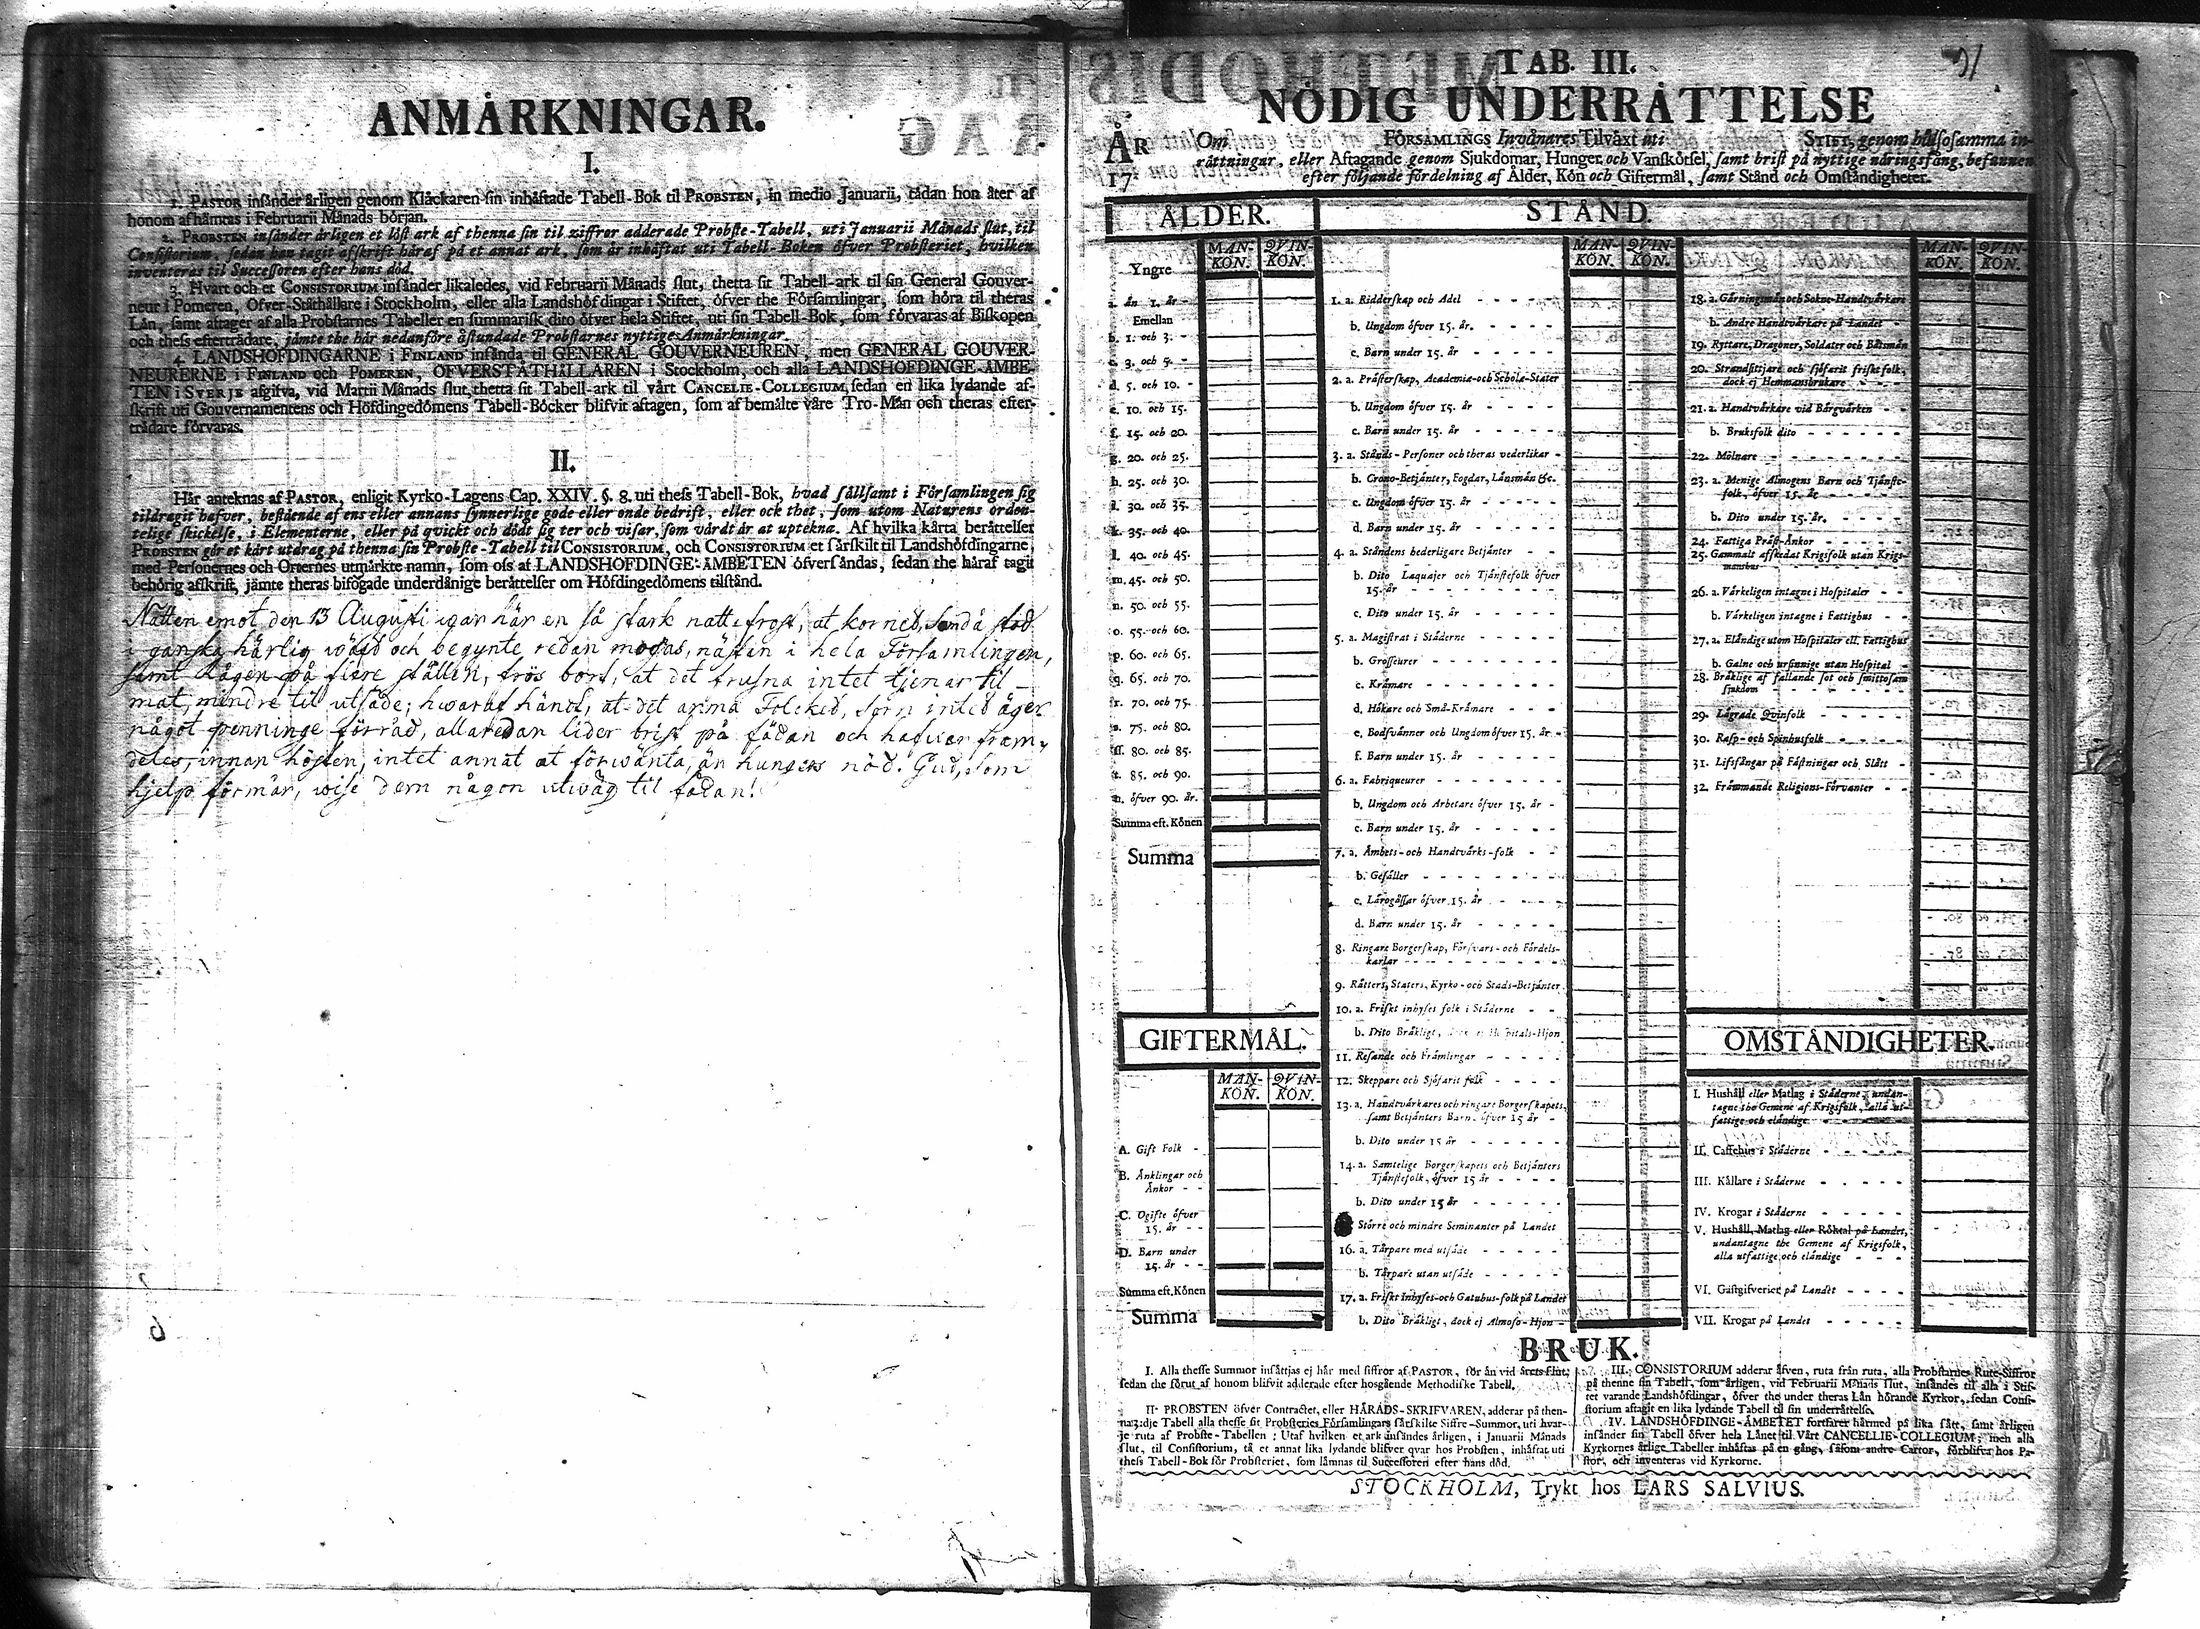 ANMÅRKNINGAR.
I.
1. PASTOR insånder årligen genom Klåckaren sin inhåftade Tabell-Bok til PROBSTEN, in medio Januarii, tådan hon åter af
honom afhåmtas i Februarii Månads början.
2. PROBSTEN insånder årligen et löst ark af thenna sin til ziffror adderade Probste-Tabell, uti Januarii Månads slut, til
Consistorium, sedan han tagit afskrift håraf på et annat ark, som år inhåftat uti Tabell-Boken öfver Probsteriet, hvilken
inventeras til Successoren efter hans död.
3. Hvart och et CONSISTORIUM insånder likaledes, vid Februarii Månads slut, thetta sit Tabell-ark til sin General Gouver-
neur i Pomeren, Öfver-Ståthållare i Stockholm, eller alla Landshöfdingar i Stiftet, öfver the Församlingar, som höra til theras
Lån, samt aftager af alla Probstarnes Tabeller en summarisk dito öfver hela Stiftet, uti sin Tabell-Bok, som förvaras af Biskopen
och thess eftertrådare, jåmte the hår nedanföre åstundade Probstarnes nyttige Anmårkningar.
4. LANDSHÖFDINGARNE i FINLAND insånda til GENERAL GOUVERNEUREN, men GENERAL GOUVER-
NEURERNE i FINLAND och POMEREN, ÖFVERSTÅTHÅLLAREN i Stockholm, och alla LANDSHÖFDINGE-ÅMBE-
TEN i SVERJE afgifva, vid Martii Månads slut, thetta sit Tabell-ark til vårt CANCELIE-COLLEGIUM, sedan en lika lydande af-
skrift uti Gouvernamentens och Höfdingedömens Tabell-Böcker blifvit aftagen, som af bemålte våre Tro-Mån och theras efter-
trådare förvaras.
II.
Hår anteknas af PASTOR, enligit Kyrko-Lagens Cap. XXIV. §. 8. uti thess Tabell-Bok, hvad sållsamt i Församlingen sig
tildragit hafver, bestående af ens eller annans synnerlige gode eller onde bedrift, eller ock thet, som utom Naturens orden-
telige skickelse, i Elementerne, eller på qvickt och dödt sig ter och visar, som vårdt år at uptekna. Af hvilka kårta beråttelser
PROBSTEN gör et kårt utdrag på thenna sin Probste-Tabell til CONSISTORIUM, och CONSISTORIUM et sårskilt til Landshöfdingarne,
med Personernes och Orternes utmårkte namn, som oss af LANDSHÖFDINGE-ÅMBETEN öfversåndas, sedan the håraf tagit
behörig afskrift, jåmte theras bifogade underdånige beråttelser om Höfdingedömens tilstånd.
Natten emot den 13 Augusti war här en så stark nattefrost, at kornet, som då stod
i ganska härlig wäxt och begynte redan mogas, nästan i hela Församlingen,
samt Rågen på flere ställen, frös bort, at det frusna intet tjenar til
mat, mindre til utsäde; hwaraf händt, at det arma Folcked, som inted äger
något penninge förråd, allaredan lider brist på födan och hafwer fram-
deles, innan hösten, intet annat at förwänta, än hungers nöd. Gud, som
hjelp förmår, wise dem någon utwäg til födan!
TAB. III.
NÖDIG UNDERRÅTTELSE
ÅR Om FÖRSAMLINGS Invånares Tilvåxt uti STIFT, genom hålsosamma in-
17 råttningar, eller Aftagande genom Sjukdomar, Hunger och Vanskötsel, samt brist på nyttige nåringsfång, befunnen
efter följande fördelning af Ålder, Kön och Giftermål, samt Stånd och Omståndigheter.
ÅLDER. STÅND.
MAN-KÖN. QVIN-KÖN. MAN-KÖN. QVIN-KÖN. MAN-KÖN. QVIN-KÖN.
Yngre
a. ån 1. år -
Emellan
b. 1. och 3. -
c. 3. och 5. -
d. 5. och 10. -
e. 10. och 15.
f. 15. och 20.
g. 20. och 25.
h. 25. och 30.
i. 30. och 35.
k. 35. och 40.
l. 40. och 45.
m. 45. och 50.
n. 50. och 55.
o. 55. och 60.
p. 60. och 65.
q. 65. och 70.
r. 70. och 75.
s. 75. och 80.
ss. 80. och 85.
t. 85. och 90.
u. öfver 90. år.
Summa eft. Könen
Summa
GIFTERMÅL.
MAN-KÖN. QVIN-KÖN.
A. Gift Folk -
B. Ånklingar och
Ånkor - -
C. Ogifte öfver
15. år - -
D. Barn under
15. år - -
Summa eft. Könen
Summa
1. a. Ridderskap och Adel
b. Ungdom öfver 15. år.
c. Barn under 15. år
2. a. Pråsterskap, Academiæ-och Scholæ-Stater
b. Ungdom öfver 15. år
c. Barn under 15. år
3. a. Stånds-Personer och theras vederlikar
b. Crono-Betjånter, Fogdar, Lånsmån &c.
c. Ungdom öfver 15. år
d. Barn under 15. år
4. a. Ståndens hederligare Betjånter
b. Dito Laquajer och Tjånstefolk öfver
15. år
c. Dito under 15. år
5. a. Magistrat i Ståderne
b. Grosseurer
c. Kråmare
d. Hökare och Små-Kråmare
e. Bodsvånner och Ungdom öfver 15. år
f. Barn under 15. år
6. a. Fabriqueurer
b. Ungdom och Arbetare öfver 15. år
c. Barn under 15. år
7. a. Åmbets-och Handtvårks-folk
b. Gesåller
c. Lårogåssar öfver 15. år
d. Barn under 15. år
8. Ringare Borgerskap, Försvars-och Fördels-
karlar
9. Råtters, Staters, Kyrko-och Stads-Betjånter
10. a. Friskt inhyses folk i Ståderne
b. Dito Bråkligt, dock ej Hospitals-Hjon
11. Resande och Fråmlingar
12. Skeppare och Sjöfarit folk
13. a. Handtvårkares och ringare Borgerskapets,
samt Betjånters Barn, öfver 15 år
b. Dito under 15 år
14. a. Samtelige Borgerskapets och Betjånters
Tjånstefolk, öfver 15 år
b. Dito under 15 år
Större och mindre Seminanter på Landet
16. a. Tårpare med utsåde
b. Tårpare utan utsåde
17. a. Friskt Inhyses-och Gatuhus-folk på Landet
b. Dito Bråkligt, dock ej Almoso-Hjon
18. a. Gårningsmån och Sokne-Handtvårkare
b. Andre Handtvårkare på Landet
19. Ryttare, Dragoner, Soldater och Båtsmån
20. Strandsittjare och sjöfarit friskt folk,
dock ej Hemmansbrukare
21. a. Handtvårkare vid Bårgvårken
b. Bruksfolk dito
22. Mölnare
23. a. Menige Almogens Barn och Tjånste-
folk, öfver 15. år
b. Dito under 15. år.
24. Fattiga Pråst-Ånkor
25. Gammalt afskedat Krigsfolk utan Krigs-
manshus
26. a. Vårkeligen intagne i Hospitaler
b. Vårkeligen intagne i Fattighus
27. a. Elåndige utom Hospitaler ell. Fattighus
b. Galne och ursinnige utan Hospital
28. Bråklige af fallande sot och smittosam
sjukdom
29. Lågrade Qvinfolk
30. Rasp-och Spinhusfolk
31. Lifsfångar på Fåstningar och Slått
32. Fråmmande Religions-Förvanter
OMSTÅNDIGHETER.
I. Hushåll eller Matlag i Ståderne, undan-
tagne the Gemene af Krigsfolk, alla ut-
fattige och elåndige
II. Caffehus i Ståderne
III. Kållare i Ståderne
IV. Krogar i Ståderne
V. Hushåll, Matlag eller Röktal på Landet,
undantagne the Gemene af Krigsfolk,
alla utfattige och elåndige
VI. Gåstgifverier på Landet
VII. Krogar på Landet
BRUK.
I. Alla thesse Summor insåttjas ej hår med siffror af PASTOR, för ån vid årets slut,
sedan the förut af honom blifvit adderade efter hosgående Methodiske Tabell.
II. PROBSTEN öfver Contractet, eller HÅRADS-SKRIFVAREN, adderar på then-
na 3:dje Tabell alla thesse sit Probsteries Församlingars sårskilte Siffre-Summor, uti hvar-
je ruta af Probste-Tabellen; Utaf hvilken et ark insåndes årligen, i Januarii Månads
slut, til Consistorium, tå et annat lika lydande blifver qvar hos Probsten, inhåftat uti
thess Tabell-Bok för Probsteriet, som låmnas til Successoren efter hans död.
III. CONSISTORIUM adderar åfven, ruta från ruta, alla Probstarnes Rute-Siffror
på thenne sin Tabell, som årligen, vid Februarii Månads slut, insåndes til alla i Stif-
tet varande Landshöfdingar, öfver the under theras Lån hörande Kyrkor, sedan Consi-
storium aftagit en lika lydande Tabell til sin underråttelse.
IV. LANDSHÖFDINGE-ÅMBETET fortfarer hårmed på lika sått, samt årligen
insånder sin Tabell öfver hela Lånet til Vårt CANCELLIE-COLLEGIUM; men alla
Kyrkornes årlige Tabeller inhåftas på en gång, såsom andre Cartor, förblifva hos Pa-
stor, och inventeras vid Kyrkorne.
STOCKHOLM, Trykt hos LARS SALVIUS.